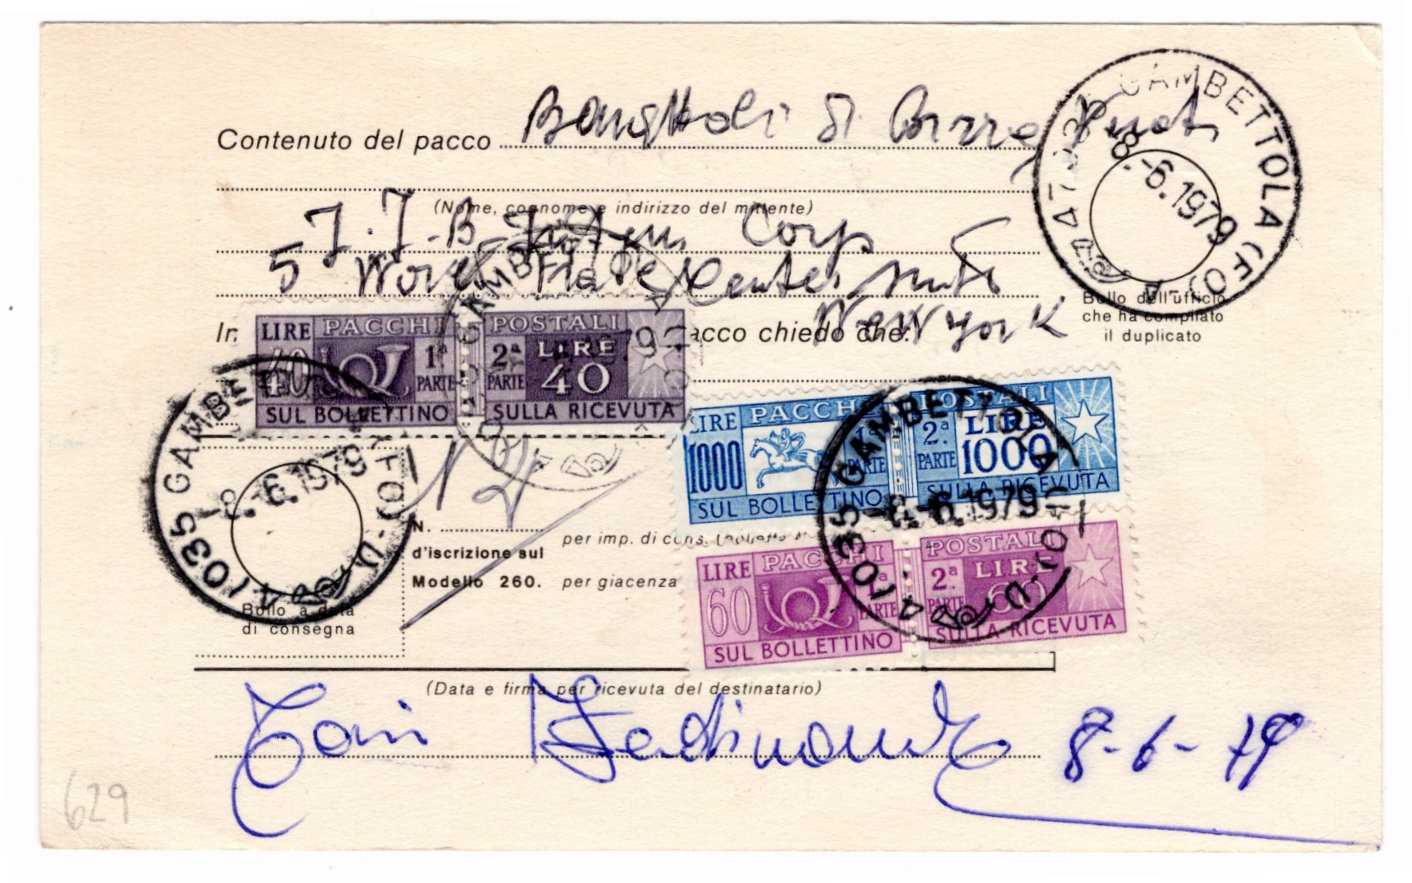 Contenuto del pacco
47035 GAMBETTOLA (FO)
8.-6.1979
(Nome, cognome e indirizzo del mittente)
J.J.B. Corp
5 World Trade Center
New York
Bollo dell'ufficio
che ha compilato
il duplicato
In acco chiedo che:
LIRE PACCHI POSTALI
40 1ª PARTE 2ª PARTE LIRE 40
SUL BOLLETTINO SULLA RICEVUTA
LIRE PACCHI POSTALI
1000 1ª PARTE 2ª PARTE LIRE 1000
SUL BOLLETTINO SULLA RICEVUTA
47035 GAMBETTOLA (FO)
8.-6.1979
47035 GAMBETTOLA (FO)
8.-6.1979
N.
d'iscrizione sul
Modello 260.
per imp. di cons.
per giacenza
LIRE PACCHI POSTALI
60 1ª PARTE 2ª PARTE LIRE 60
SUL BOLLETTINO SULLA RICEVUTA
Bollo a data
di consegna
(Data e firma per ricevuta del destinatario)
8-6-79
629